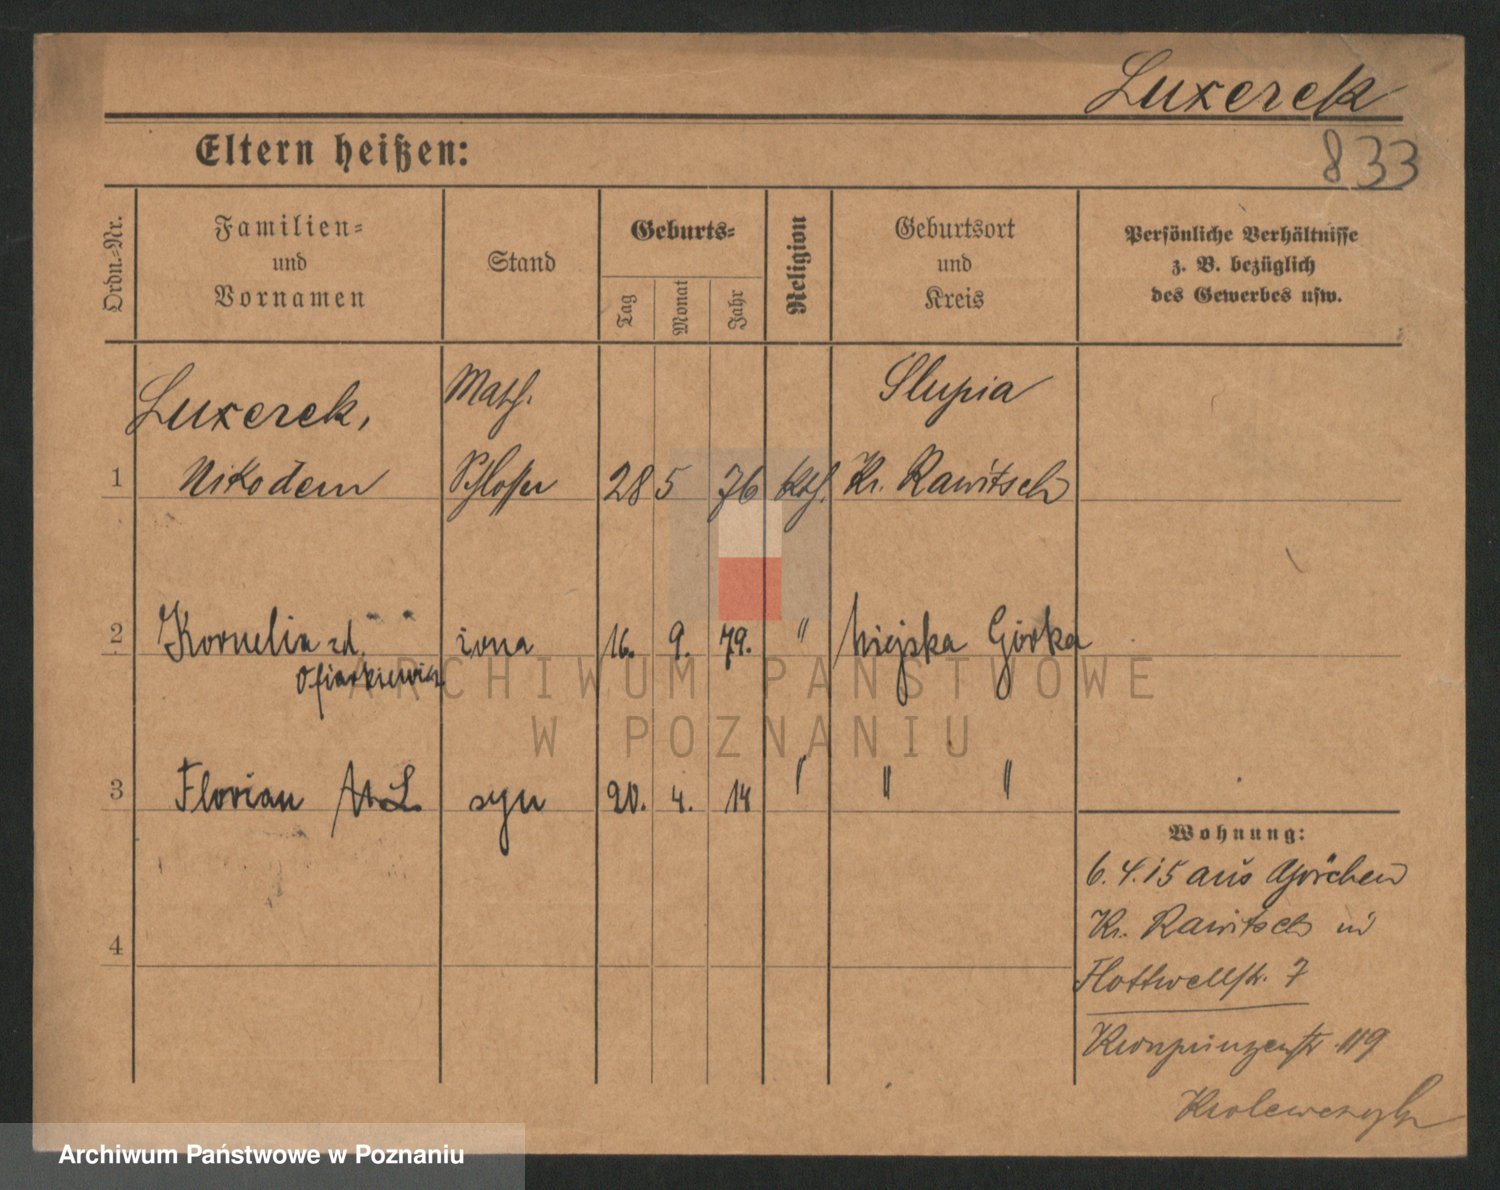 Luxerek
833
Eltern heißen:
Ordn.-Nr.
Familien-
und
Vornamen
Stand
Geburts-
Tag
Monat
Jahr
Religion
Geburtsort
und
Kreis
Persönliche Verhältnisse
z. B. bezüglich
des Gewerbes usw.
Luxerek,
Math.
Slupia
1 Nikodem Schlosser 28 5 76 kth. Kr. Rawitsch
2 Kornelia zd. żona 16. 9. 79. " Miejska Górka
Ofiarkiewicz
3 Florian syn 20. 4. 14 " " "
Wohnung:
6.4.15 aus Görchen
Kr. Rawitsch in
4
Flottwellstr. 7
Kronprinzenstr. 119
Krolewczyk
ARCHIWUM PAŃSTWOWE
W POZNANIU
Archiwum Państwowe w Poznaniu